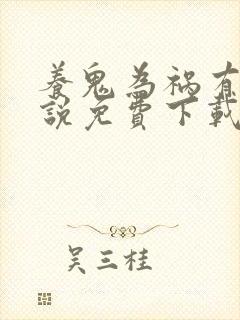 養鬼為禍有
說免費下載
吳三桂